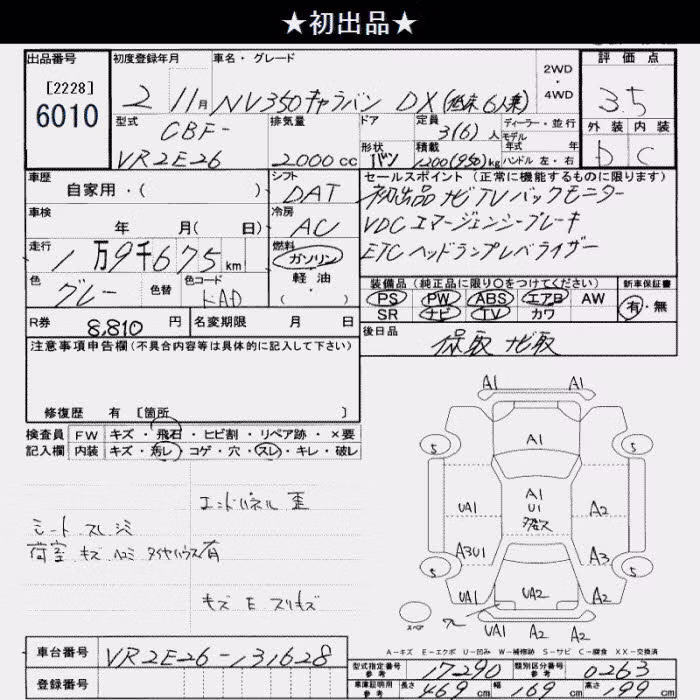 ★初出品★
出品番号 初度登録年月 車名・グレード 2WD・4WD 評価点
[2228]
6010
2 11月 NV350キャラバン DX(低床6人乗) 3.5
型式 排気量 ドア 定員 ディーラー・並行 外装 内装
CBF- 3(6)人 モデル年式 年式
VR2E26 2000cc 形状 バン 積載 1200(950)kg ハンドル 左・右 D C
車歴 シフト セールスポイント(正常に機能するものに限ります)
自家用・( ) DAT 初出品 ナビTVバックモニター
車検 冷房 VDCエマージェンシーブレーキ
年 月( 日) AC ETCヘッドランプレベライザー
走行 燃料
1万9千675km ガソリン
軽油
・( )
色 色替 色コード 装備品(純正品に限り○をつけてください) 新車保証書
グレー KAD PS PW ABS エアB AW 有・無
SR ナビ TV カワ
R券 8,810円 名変期限 月 日 後日品
保取 ナビ取
注意事項申告欄(不具合内容等は具体的に記入して下さい)
修復歴 有 [箇所 ]
検査員 FW キズ・飛石・ヒビ割・リペア跡・×要
記入欄 内装 キズ・汚レ・コゲ・穴・スレ・キレ・破レ
エンドパネル 歪
シート スレ シミ
荷室 キズ ヘコミ タイヤハウス有
キズ E スリキズ
A1 A1
A1
5 5
A1
UA1 U1 A2
A3U1 A3
5 5
UA1 UA2 A2
スペア
UA1 A2 A2
A-キズ E-エクボ U-凹み W-補修跡 S-サビ C-腐食 XX-交換済
車台番号 VR2E26-131628
型式指定番号 参考 17290 類別区分番号 参考 0263
登録番号
車庫証明用 参考 長さ 469cm 幅 169cm 高さ 199cm